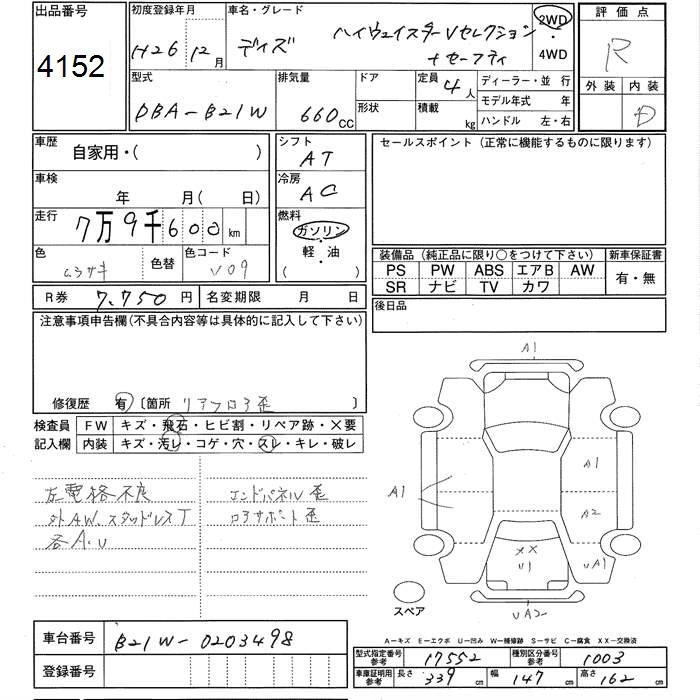 出品番号
4152
初度登録年月
H26 12月
車名・グレード
デイズ ハイウェイスターVセレクション
+セーフティ
2WD
・
4WD
評価点
R
外装 内装
D
型式
DBA-B21W
排気量
660cc
ドア
形状
定員 4人
積載 kg
ディーラー・並行
モデル年式 年
ハンドル 左・右
車歴
自家用・( )
車検
年 月(日)
走行
7万9千600km
色
ムラサキ
色替
色コード
V09
シフト
AT
冷房
AC
燃料
ガソリン
・
軽・油
( )
セールスポイント(正常に機能するものに限ります)
装備品(純正品に限り○をつけて下さい)
PS PW ABS エアB AW
SR ナビ TV カワ
新車保証書
有・無
後日品
R券 7.750円
名変期限 月 日
注意事項申告欄(不具合内容等は具体的に記入して下さい)
修復歴 有 〔箇所 リアフロア歪 〕
検査員
記入欄
FW キズ・飛石・ヒビ割・リペア跡・×要
内装 キズ・汚レ・コゲ・穴・スレ・キレ・破レ
左電格不良
外AW.スタッドレスT
各A.U
エンドパネル歪
ロアサポート歪
A1
A1
A1
A2
××
U1
UA1
UA2
スペア
A-キズ E-エクボ U-凹み W-補修跡 S-サビ C-腐食 XX-交換済
車台番号
B21W-0203498
登録番号
型式指定番号
参考
17552
種別区分番号
参考
1003
車庫証明用
参考
長さ 339cm 幅 147cm 高さ 162cm